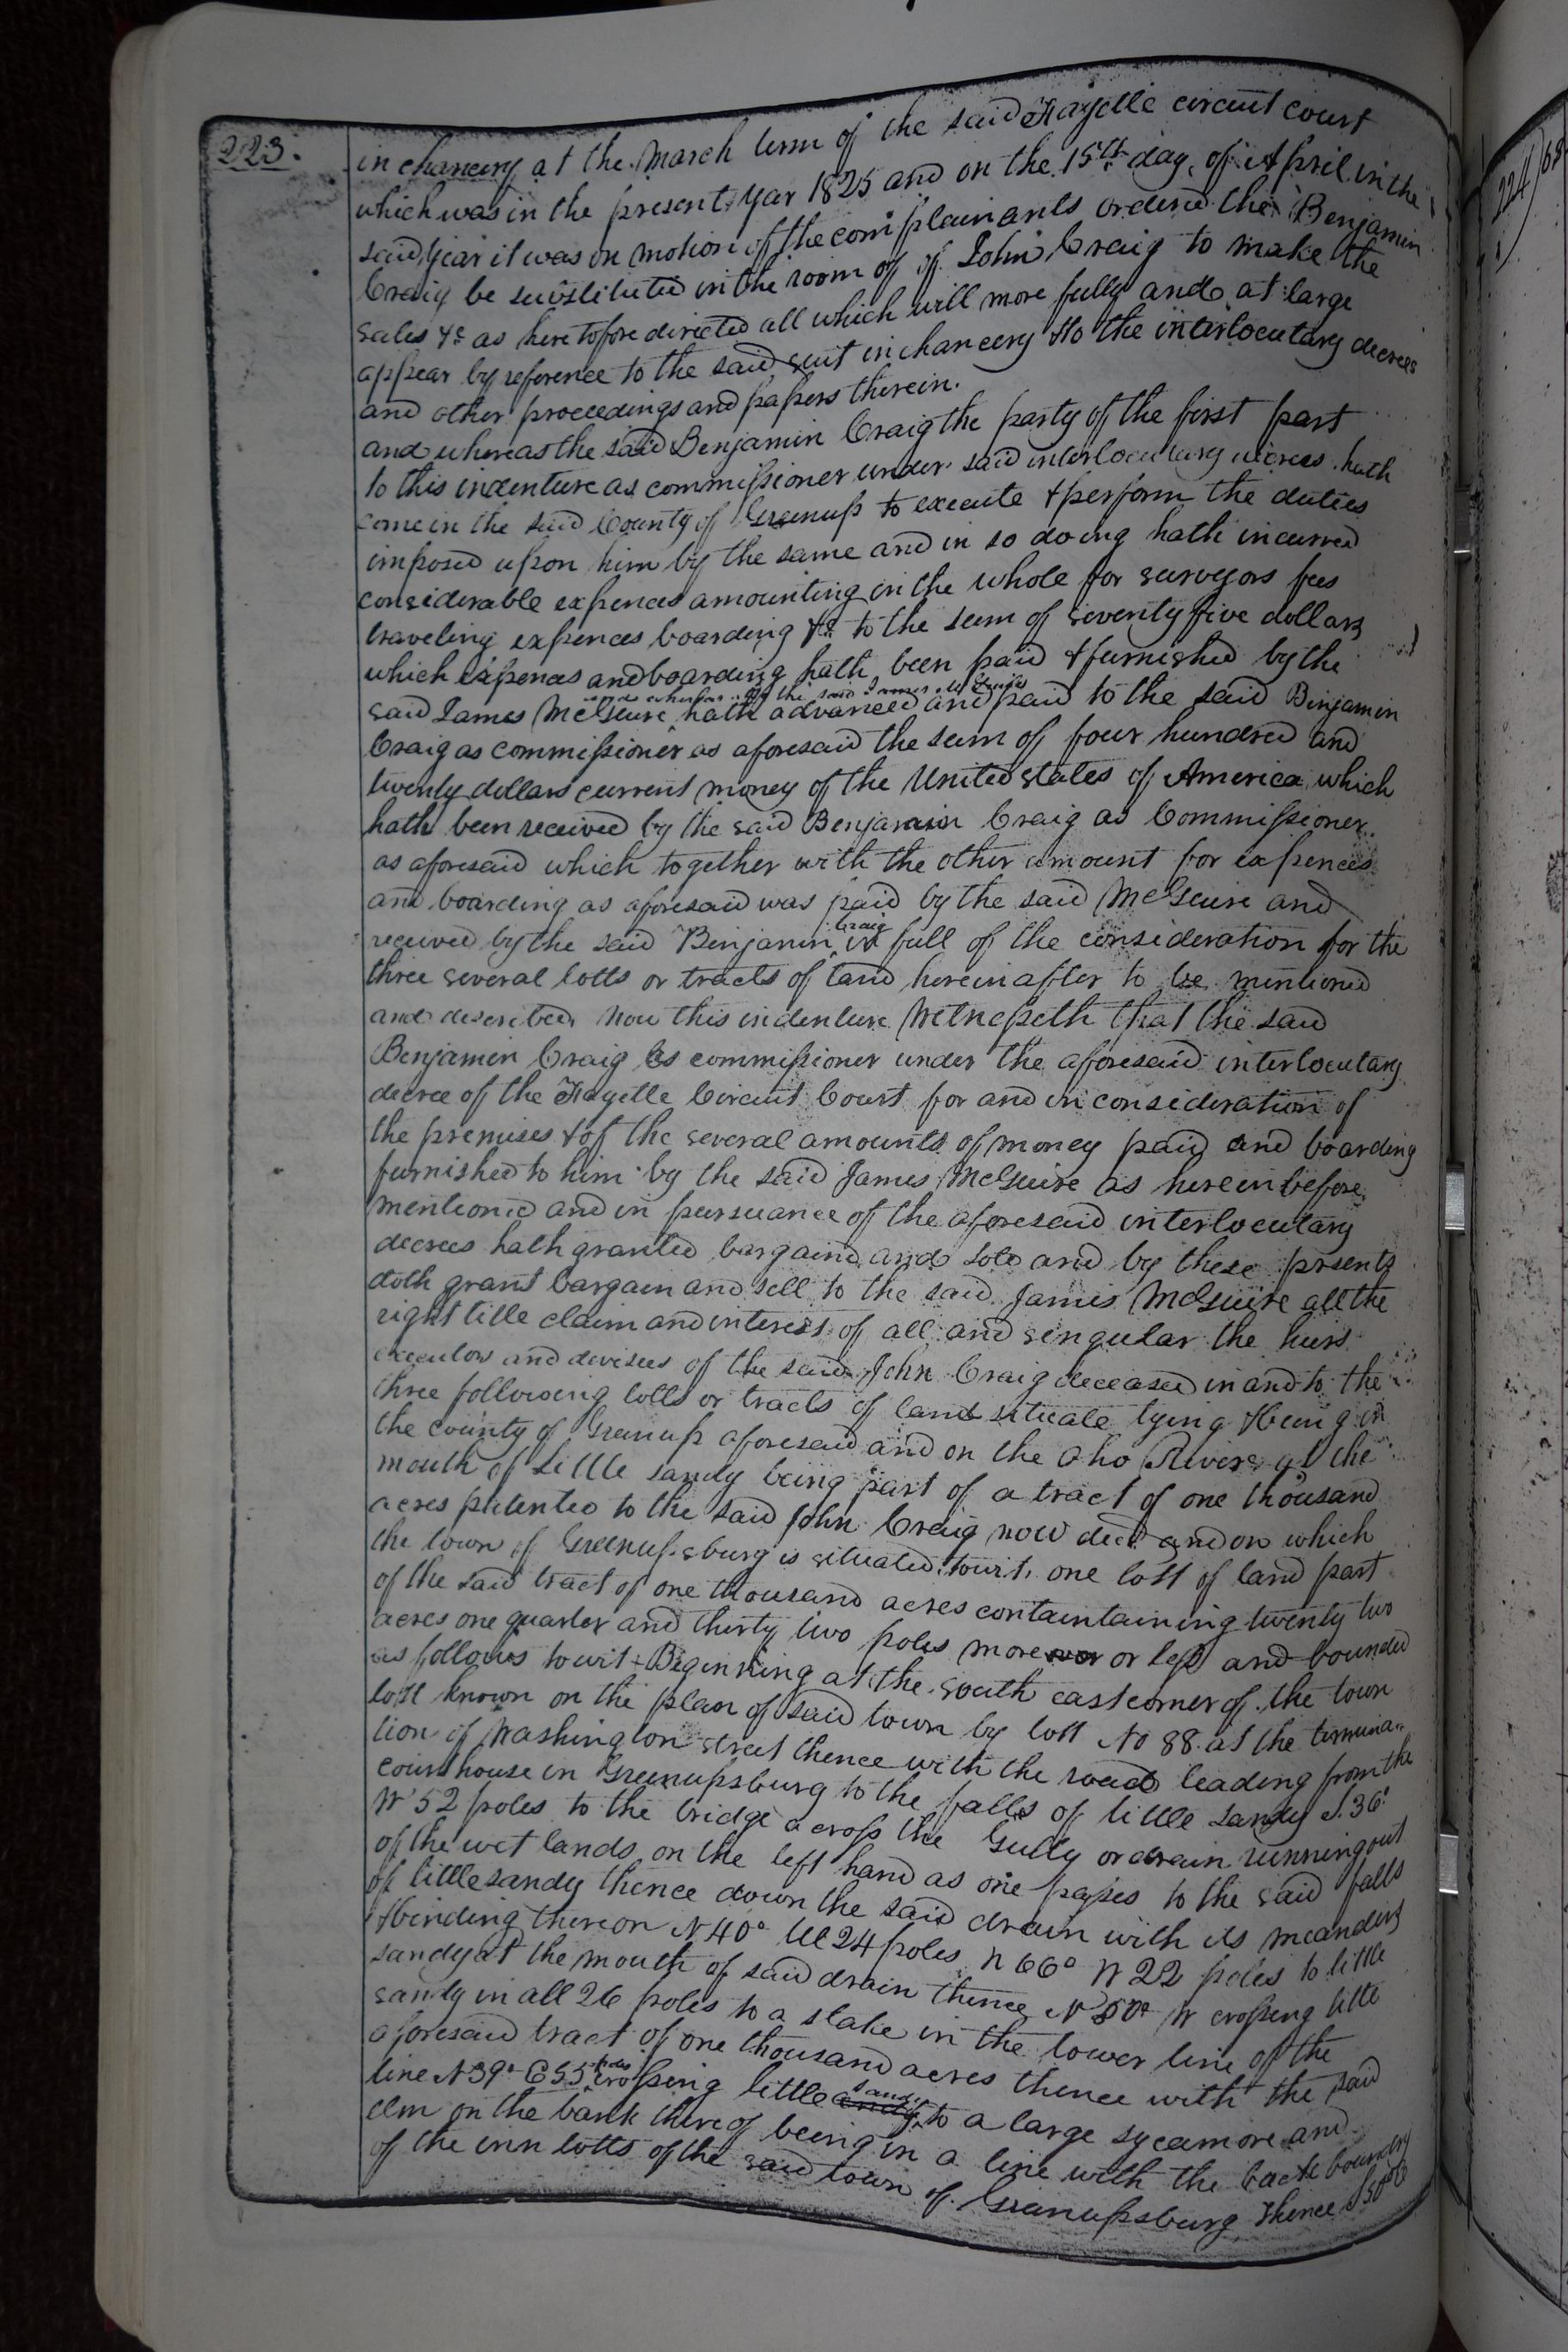 223.
in chancery at the March term of the said Fayette circuit court
which was in the present year 1825 and on the 15th day, of April in the
said year it was on motion of the complainants ordered the Benjamin
Craig be substituted in the room of of John Craig to make the
sales &c as heretofore directed all which will more fully and at large
appear by reference to the said suit in chancery & to the interlocutary decrees
and other proceedings and papers therein.
and whereas the said Benjamin Craig the party of the first part
to this indenture as commissioner under said interlocutary decrees hath
come in the said County of Greenup to execute & perform the duties
imposed upon him by the same and in so doing hath incurred
considerable expences amounting in the whole for surveyors fees
traveling expences boarding &c to the sum of seventy five dollars
which expences and boarding hath been paid & furnished by the
and whereas the said James McGuire
said James McGuire hath advanced and paid to the said Benjamin
Craig as commissioner as aforesaid the sum of four hundred and
twenty dollars current money of the United states of America which
hath been received by the said Benjamin Craig as Commissioner
as aforesaid which together with the other amount for expences
and boarding as aforesaid was paid by the said McGuire and
Craig
received by the said Benjamin in full of the consideration for the
three several lotts or tracts of land hereinafter to be mentioned
and described Now this indenture Witnesseth that the said
Benjamin Craig as commissioner under the aforesaid interlocutary
decree of the Fayette Circuit Court for and in consideration of
the premises & of the several amounts of money paid and boarding
furnished to him by the said James McGuire as herein before
mentioned and in pursuance of the aforesaid interlocutary
decrees hath granted bargaind and sold and by these prsents
doth grant bargain and sell to the said James McGuire all the
right title claim and interest of all and singular the heirs
executors and devisees of the said John Craig deceased in and to the
three following lotts or tracts of land situate lying & being in
the county of Greenup aforesaid and on the Oho River at the
mouth of Little sandy being part of a tract of one thousand
acres patented to the said John Craig now decd. and on which
the town of Greenupsburg is situated, towit, one lott of land part
of the said tract of one thousand acres containtaining twenty two
acres one quarter and thirty two poles more or less and bounded
as follows towit. Beginning at the south east corner of the town
lott known on the plan of said town by lott No 88 at the termina-
tion of Washington street thence with the road leading from the
courthouse in Greenupsburg to the falls of little sandy S. 36°
W 52 poles to the bridge across the Gully or drain running out
of the wet lands on the left hand as one passes to the said falls
of little sandy thence down the said drain with its meanders
& binding thereon N 40° W 24 poles N 66° W 22 poles to little
sandy at the mouth of said drain thence N 50° W crossing little
sandy in all 26 poles to a stake in the lower line of the
aforesaid tract of one thousand acres thence with the said
poles
line N 39° E 55 crossing little sandy to a large sycamore and
elm on the bank thereof being in a line with the back boundery
of the inn lotts of the said town of Greenupsburg thence S 50° E